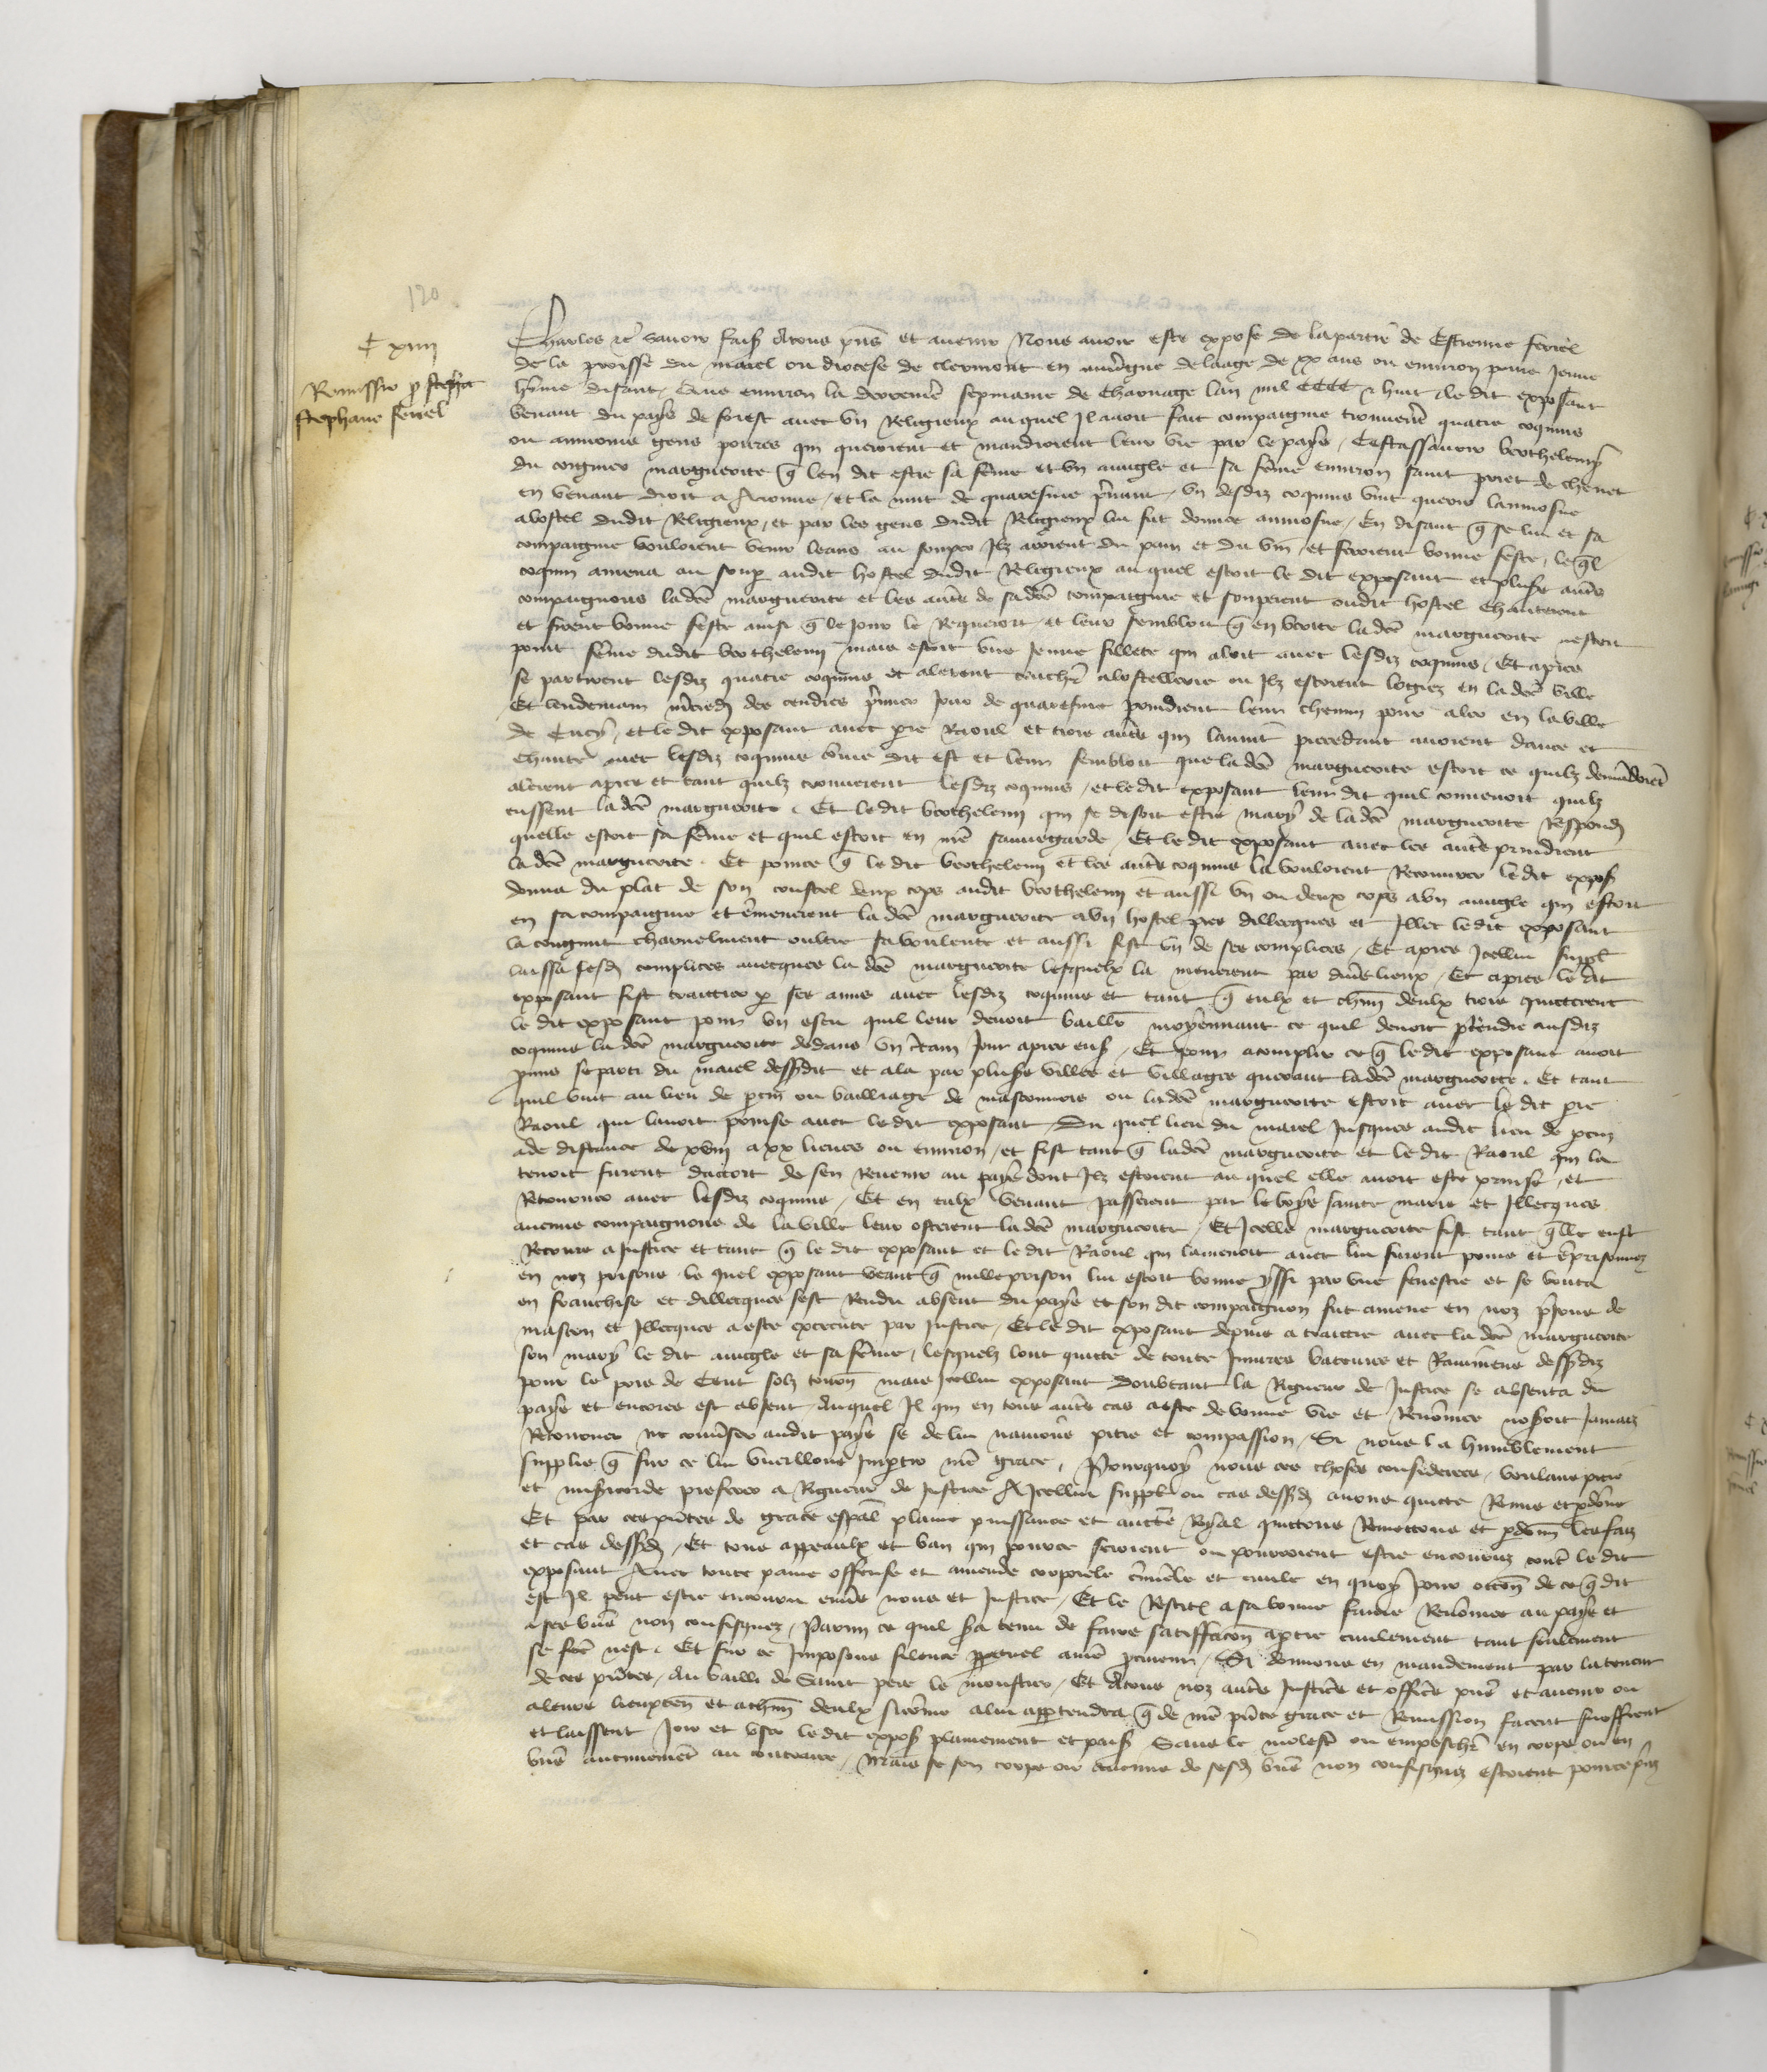 120
C xiiii
Remissio p
stephane feriel
Charles etc savoir fais Atous pns et avenir Nous avoir este expose de la partie de Estienne feriel
de la proisse du maiel ou diocese de clermont en auvgne de laage de xx ans ou environ povre Jeune
home disant Que environ la derreniere sepmaine de Charnage lan mil CCCC et huit le dit exposant
venant du pays de forest avec un Religieux auquel Il avoit fait compaignie trouverent quatre coquins
ou aumosnes gens povres qui queroient et mandioient leur vie par le pays Cestassavoir berthelemy
du coignier marguerite q len dit estre sa feme et un avugle et sa feme environ saint poiet de chenet
en venant droit a / et la nuit de quaresme pnant un desdiz coquins vint querir laumosne
alostel dudit Religieux, et par les gens dudit Religieux lui fut donnee aumosne En disant q se lui et sa
compaignie vouloient venir leans au souper Ilz avroient du pain et du vin et feroient bonne feste, le ql
coquin amena au soup audit hostel dudit Religieux au quel estoit le dit exposant et plus autres
compaignons ladce marguerite et les autres de sadce compaignie et souperent oudit hostel chanterent
et firent bonne feste ainsi q le jour le Requeroit et leur sembloit q en verite ladce marguerite nestoit
point feme dudit berthelemi mais estoit une Jeune fillete qui aloit avec lesdiz coquins Et apres
se partirent lesdiz quatre coquins et alerent couchr alostellerie ou Ilz estoient logiez en ladce ville
Et lendemain mcredi des cendres pmier Jour de quaresme prindrent leur chemin pour aler en la ville
de Cucy, et le dit exposant avec pre Raoul et trois autres qui lanuit precedant avoient dance et
chante avec lesdiz coquins come dit est et leur sembloit que ladce marguerite estoit ce quilz demandoient
alerent apres et tant quilz trouverent lesdiz coquins, et le dit exposant leur dit quil convenoit quilz
eussent ladce marguerite Et le dit berthelemi qui se disoit estre mary de ladce marguerite Respondi
quelle estoit sa feme et quil estoit en nre sauvegarde Et le dit exposant avec les autres prindrent
ladce marguerite Et pource q le dit berthelemi et les autres coquins la vouloient Recouvrer le dit expos
donna du plat de son coustel deux cops audit berthelemi et aussi un ou deux cops a un avugle qui estoit
en sa compaignie et emmenerent ladce marguerite a un hostel pres dillecques et Illec le dit exposant
la congnut charnelment oultre sa voulente et aussi fist un de ses complices Et apres Icellui suppl
laissa sesd complices avecques la dce marguerite lesquelx la menerent par divs lieux Et apres le dit
exposant fist traictier p ses amis avec lesdiz coquins et tant q eulx et chun deulx trois quicterent
le dit exposant pour un escu quil leur devoit baillr moyennant ce quil devoit Rendre ausdiz
coquins ladce marguerite dedans un ctain Jour apres ens Et pour acomplir ce q le dit exposant avoit
pmis se parti du maiel dessdit et ala par plus villes et villages querant ladce marguerite Et tant
quil vint au lieu de ou bailliage de masconnois ou ladce marguerite estoit avec le dit pre
Raoul qui lavoit prinse avec le dit exposant Du quel lieu du maiel Jusques audit lieu de
a de distance de xviii a xx lieues ou environ et fist tant q ladce marguerite et le dit Raoul qui la
tenoit furent dacort de sen Revenir au pays dont Ilz estoient au quel elle avoit este prinse, et
Retourner avec lesdiz coquins Et en eulx venant passerent par le boys sainte marie et Illecques
aucuns compaignons de la ville leur osterent ladce marguerite Et Icelle marguerite fist tant qlle eust
Recours a Justice et tant q le dit exposant et le dit Raoul qui lamenoit avec lui furent prins et emprisonnez
en noz prisons le quel exposant veant q nulle prison lui estoit bonne yssi par une fenestre et se bouta
en franchise et dillecques sest Rendu absent du pays et son dit compaignon fut amene en noz prisons de
mascon et Illecques a este execute par Justice Et le dit exposant depuis a traictie avec ladce marguerite
son mary le dit avugle et sa feme, lesquelz lont quicte de toute Injures bateures et Ravissemens dessdiz
pour le pris de Cent solz tourn mais Icellui exposant doubtant la Rigueur de Justice se absenta du
pays et encores est absent Auquel Il qui en tous autres cas a este de bonne vie et Renommee noseroit Jamais
Retourner ne convser audit pays se de lui navions pitie et compassion Si nous la humblement
supplie q sur ce lui vueillons Impartir nre grace, Pourquoy nous ces choses considerees voulans pitie
et misericorde preferer a Rigueur de Justice A Icellui suppl ou cas dessd avons quicte Remis et pdonne
Et par ces pntes de grace espal plaine puissance et auctte Royal quictons Remettons et pdonns les faiz
et cas dessd, Et tous appeaulx et ban qui pource seroient ou pourroient estre encouruz contre le dit
exposant Avec toute paine offense et amende corporele criminele et civile en quoy pour occon de ce q dit
est Il peut estre encouru envs nous et Justice Et le Restituons a sa bonne fame Renommee au pays et
a ses biens non confisquez, Parmi ce quil sa tenu de faire satisffacon a ptie civilement tant seulement
se fte nest Et sur ce Imposons silence ppetuel a nre pcureur Si donnons en mandement par la teneur
de ces pntes Au bailli de Saint pere le moustier, Et Atous noz autres Justiciers et officiers pns et avenir ou
a leurs lieuxten et a chun deulx si come a lui appartendra q de nre pnte grace et Remission facent sueffrent
et laissent Joir et user le dit expos plainement et paisiblement Sans le molester ou empeschr en corps ou en
biens aucunement au contraire Mais se son corps ou aucuns de sesd biens non confisquez estoient pource pns